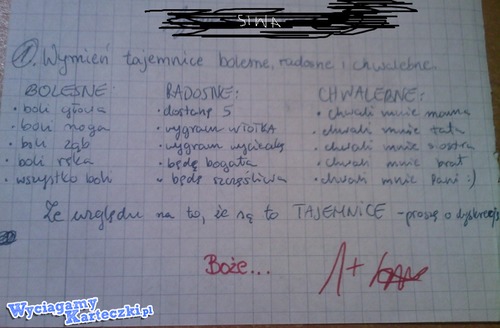 SIWA
1. Wymień tajemnice bolesne, radosne i chwalebne.
BOLESNE: RADOSNE: CHWALEBNE:
• boli głowa • dostanę 5 • chwali mnie mama
• boli noga • wygram w TOTKA • chwali mnie tata
• boli ząb • wygram wycieczkę • chwali mnie siostra
• boli ręka • będę bogata • chwali mnie brat
• wszystko boli • będę szczęśliwa • chwali mnie Pani :)
Ze względu na to, że są to TAJEMNICE - proszę o dyskrecję
Boże... 1+
Wyciagamy
Karteczki.pl